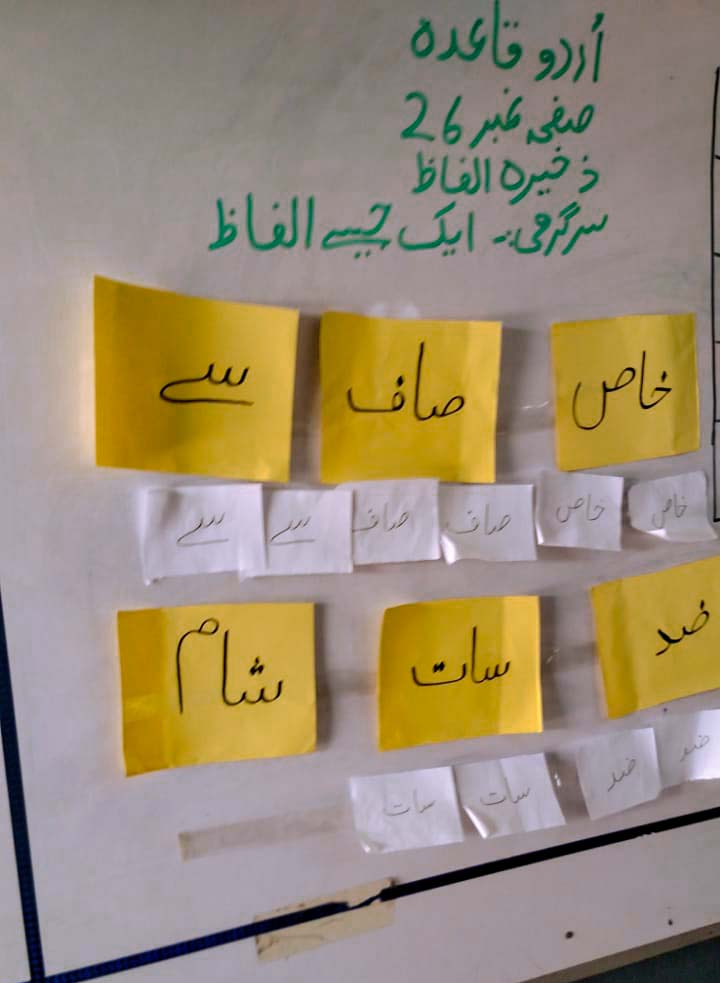 اُردو قاعدہ
صفحہ نمبر 26
ذخیرہ الفاظ
سرگرمی:۔ ایک جیسے الفاظ
خاص صاف سے
خاص خاص صاف صاف سے سے
ضد سات شام
ضد ضد سات سات